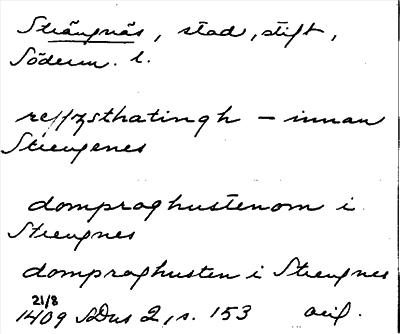 Strängnäs, stad, stift,
Söderm. l.
reffzsthatingh – innan
Strengenes
domproghustenom i
Strengnes
domproghusten i Strengnes
21/8
1409 SDns 2, s. 153 orig.